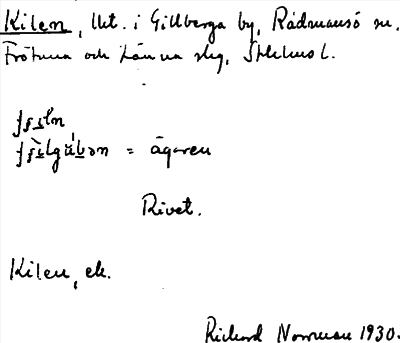 Kilen, lht. i Gillberga by, Rådmansö sn.
Frötuna och Länna slg, Sthlms l.
= ägaren
Rivet.
Kilen, ek.
Richard Norrman 1930.